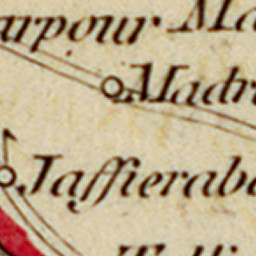 urpour Ma
Madr
Jaffierab